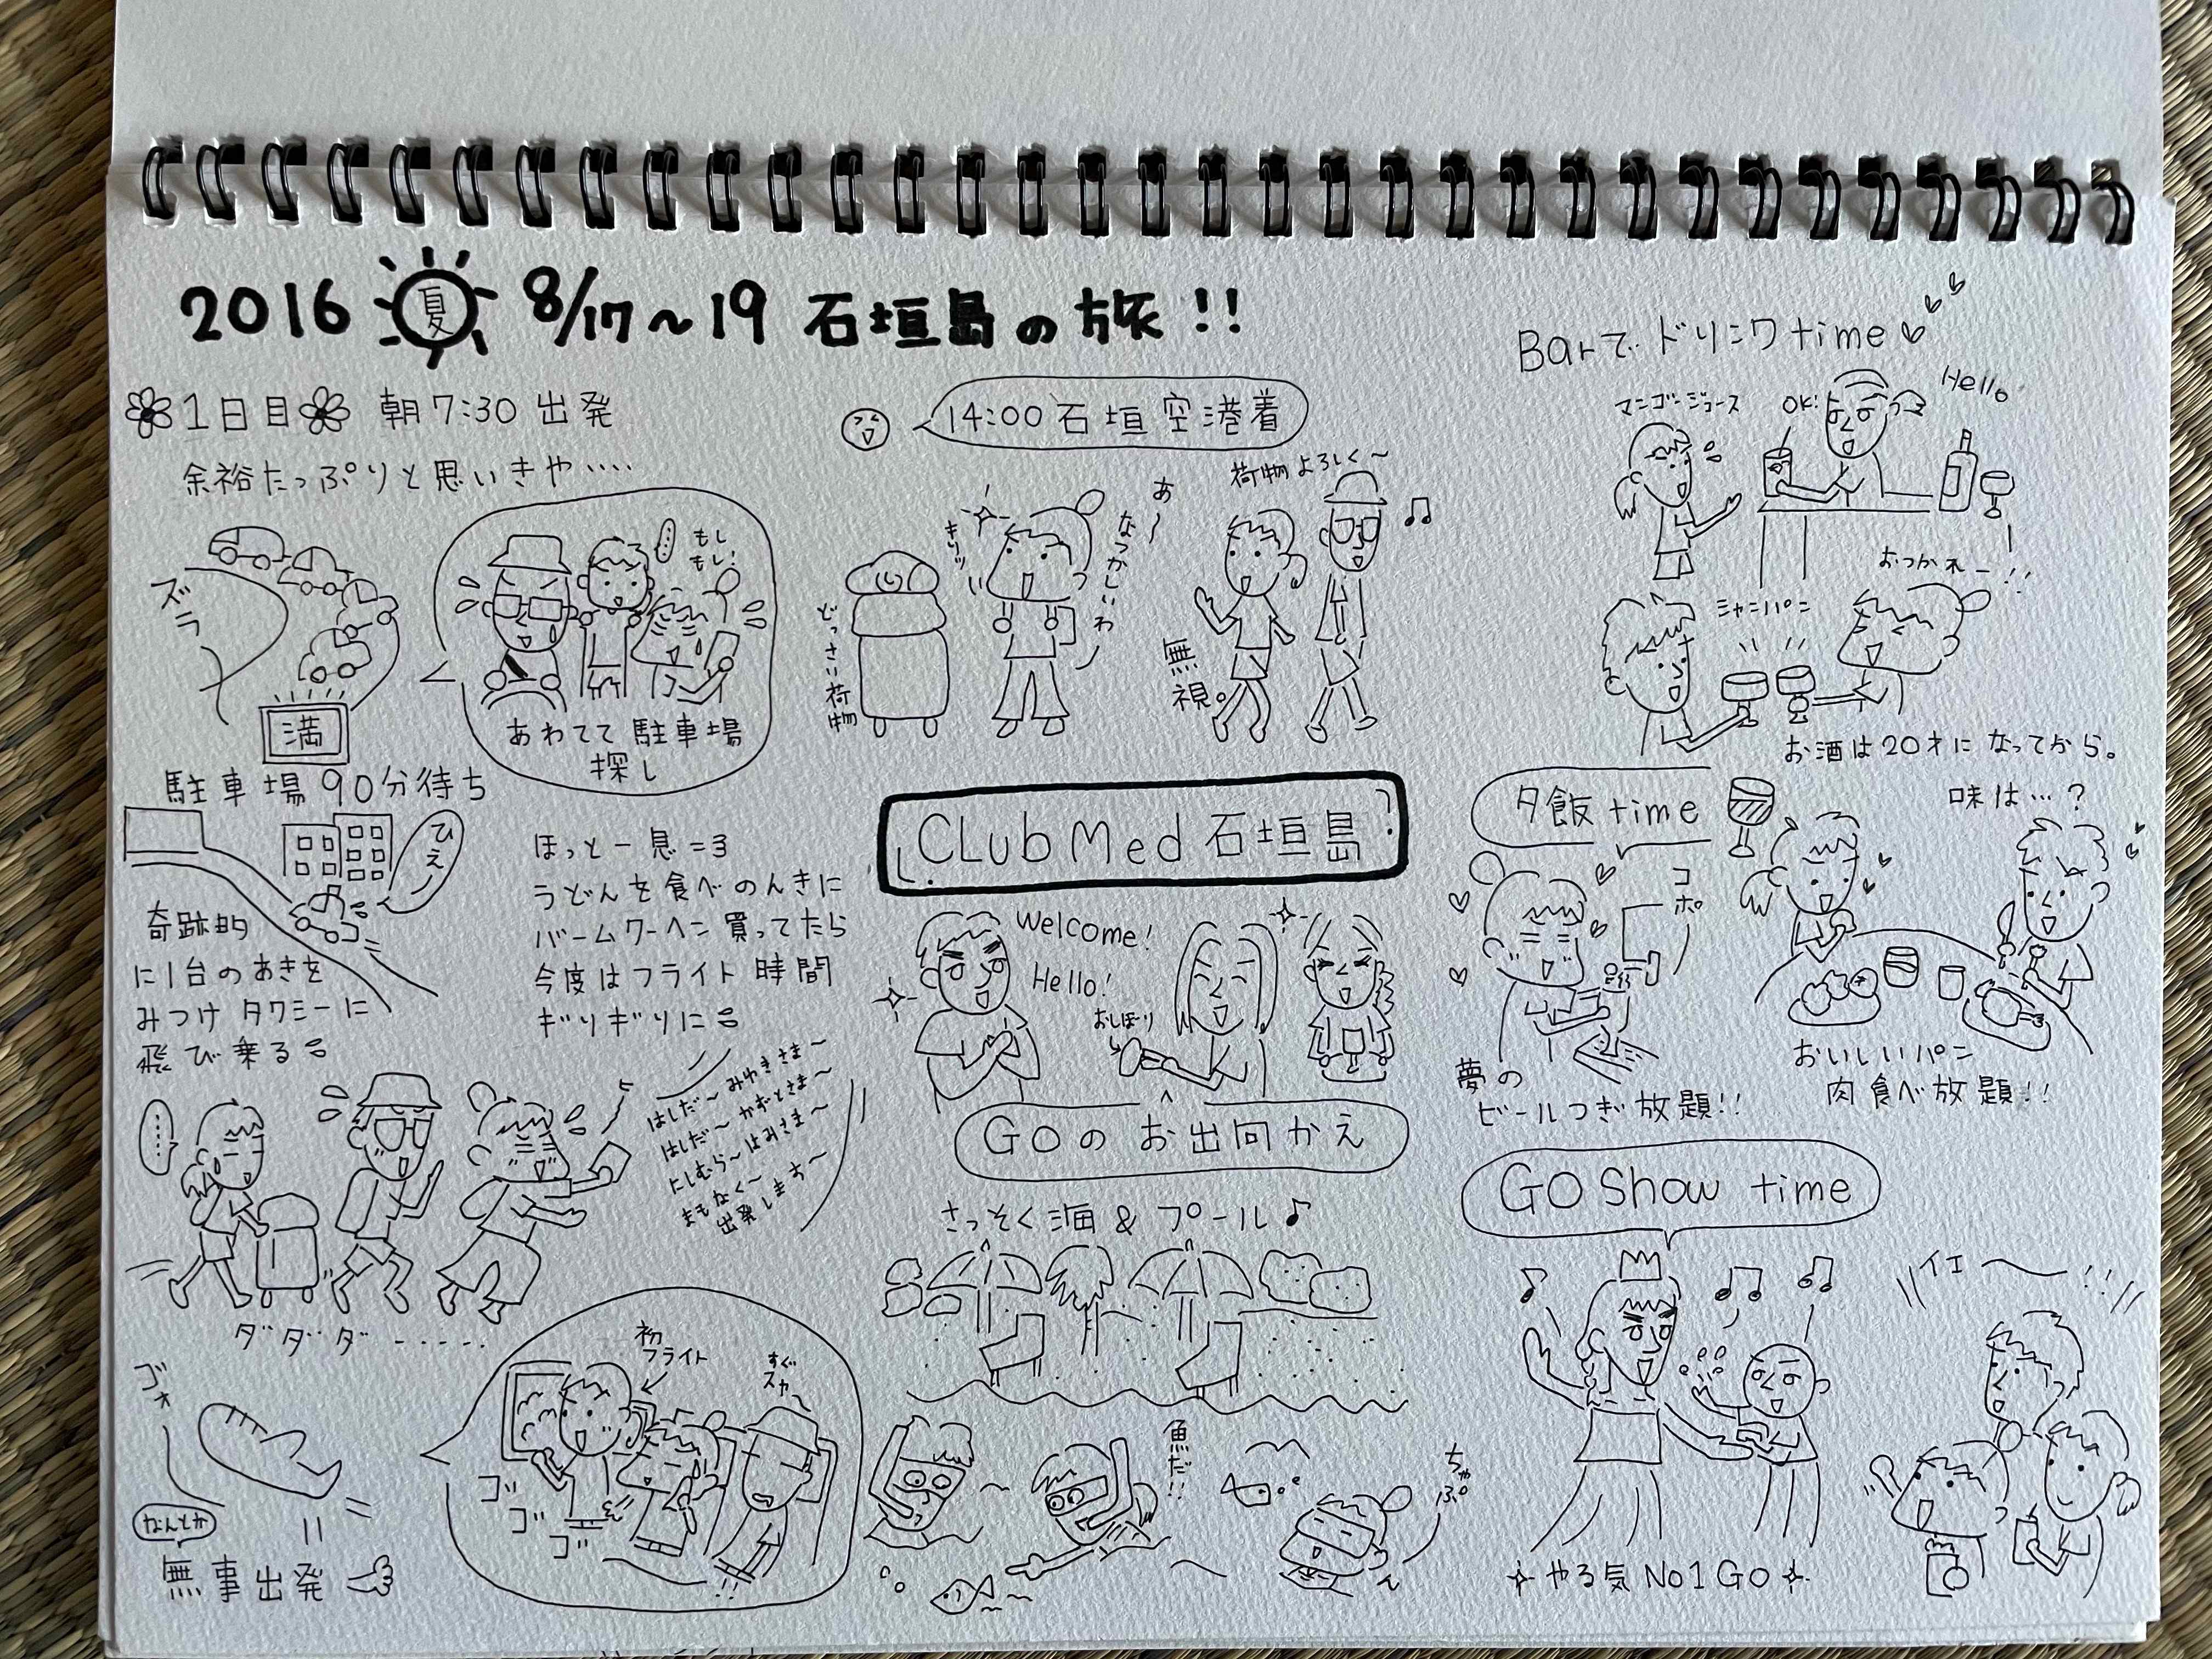 2016 夏 8/17〜19 石垣島の旅!!
1日目 朝7:30出発
余裕たっぷりと思いきや‥‥
ズラーッ
満
駐車場90分待ち
もしもし!
あわてて駐車場
探し
ひえー
奇跡的
に1台のあきを
みつけタクシーに
飛び乗る
ほっと一息=3
うどんを食べのんきに
バームクーヘン買ってたら
今度はフライト時間
ギリギリに
はしだ〜みゆきさま〜
はしだ〜かずとさま〜
にしむら〜よみさま〜
まもなく〜
出発しまお〜
ダダダ-----
ゴォ
なんとか
無事出発
初
フライト
すぐ
スカ〜
ゴゴゴ
14:00石垣空港着
どっさい荷物
キリッ
あ〜
なつかしいわ
荷物よろしく〜
無視。
CLub Med 石垣島
Welcome!
Hello!
おしぼり
GOのお出向かえ
さっそく海&プール♪
魚だ!!
ちゃぷ
Barでドリンクtime
マンゴージュース
OK!
Hello
おつかれー!!
シャンパン
お酒は20才になってから。
夕飯time
コポ
味は…?
夢の
ビールつぎ放題!!
おいしいパン
肉食べ放題!!
GO Show time
イエーーー!!
やる気No1GO